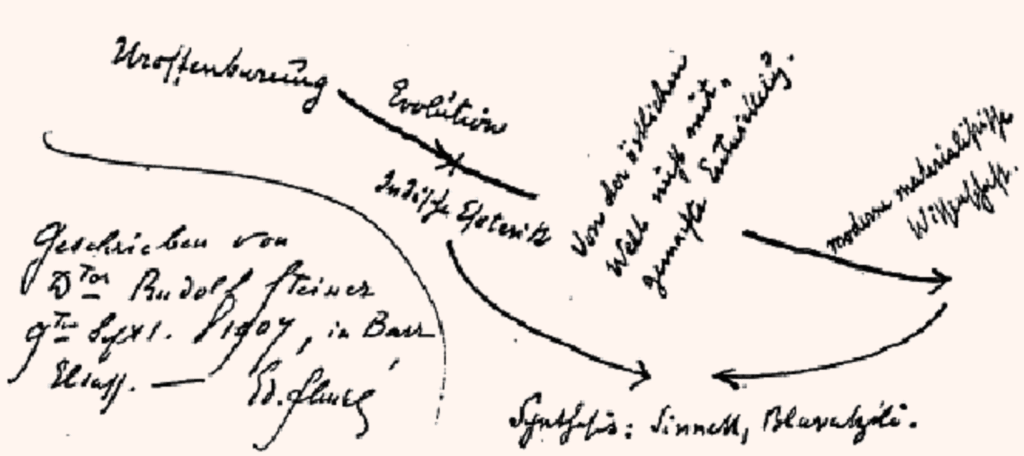 Uroffenbarung
Evolution
Indische Esoterik
Von der östlichen
Welt nicht mit-
gemachte Entwicklung.
moderne materialistische
Wissenschaft.
Synthesis: Sinnett, Blavatzki.
Geschrieben von
Dtor Rudolf Steiner
9te 1907, in Barr
Elsass. — Ed.